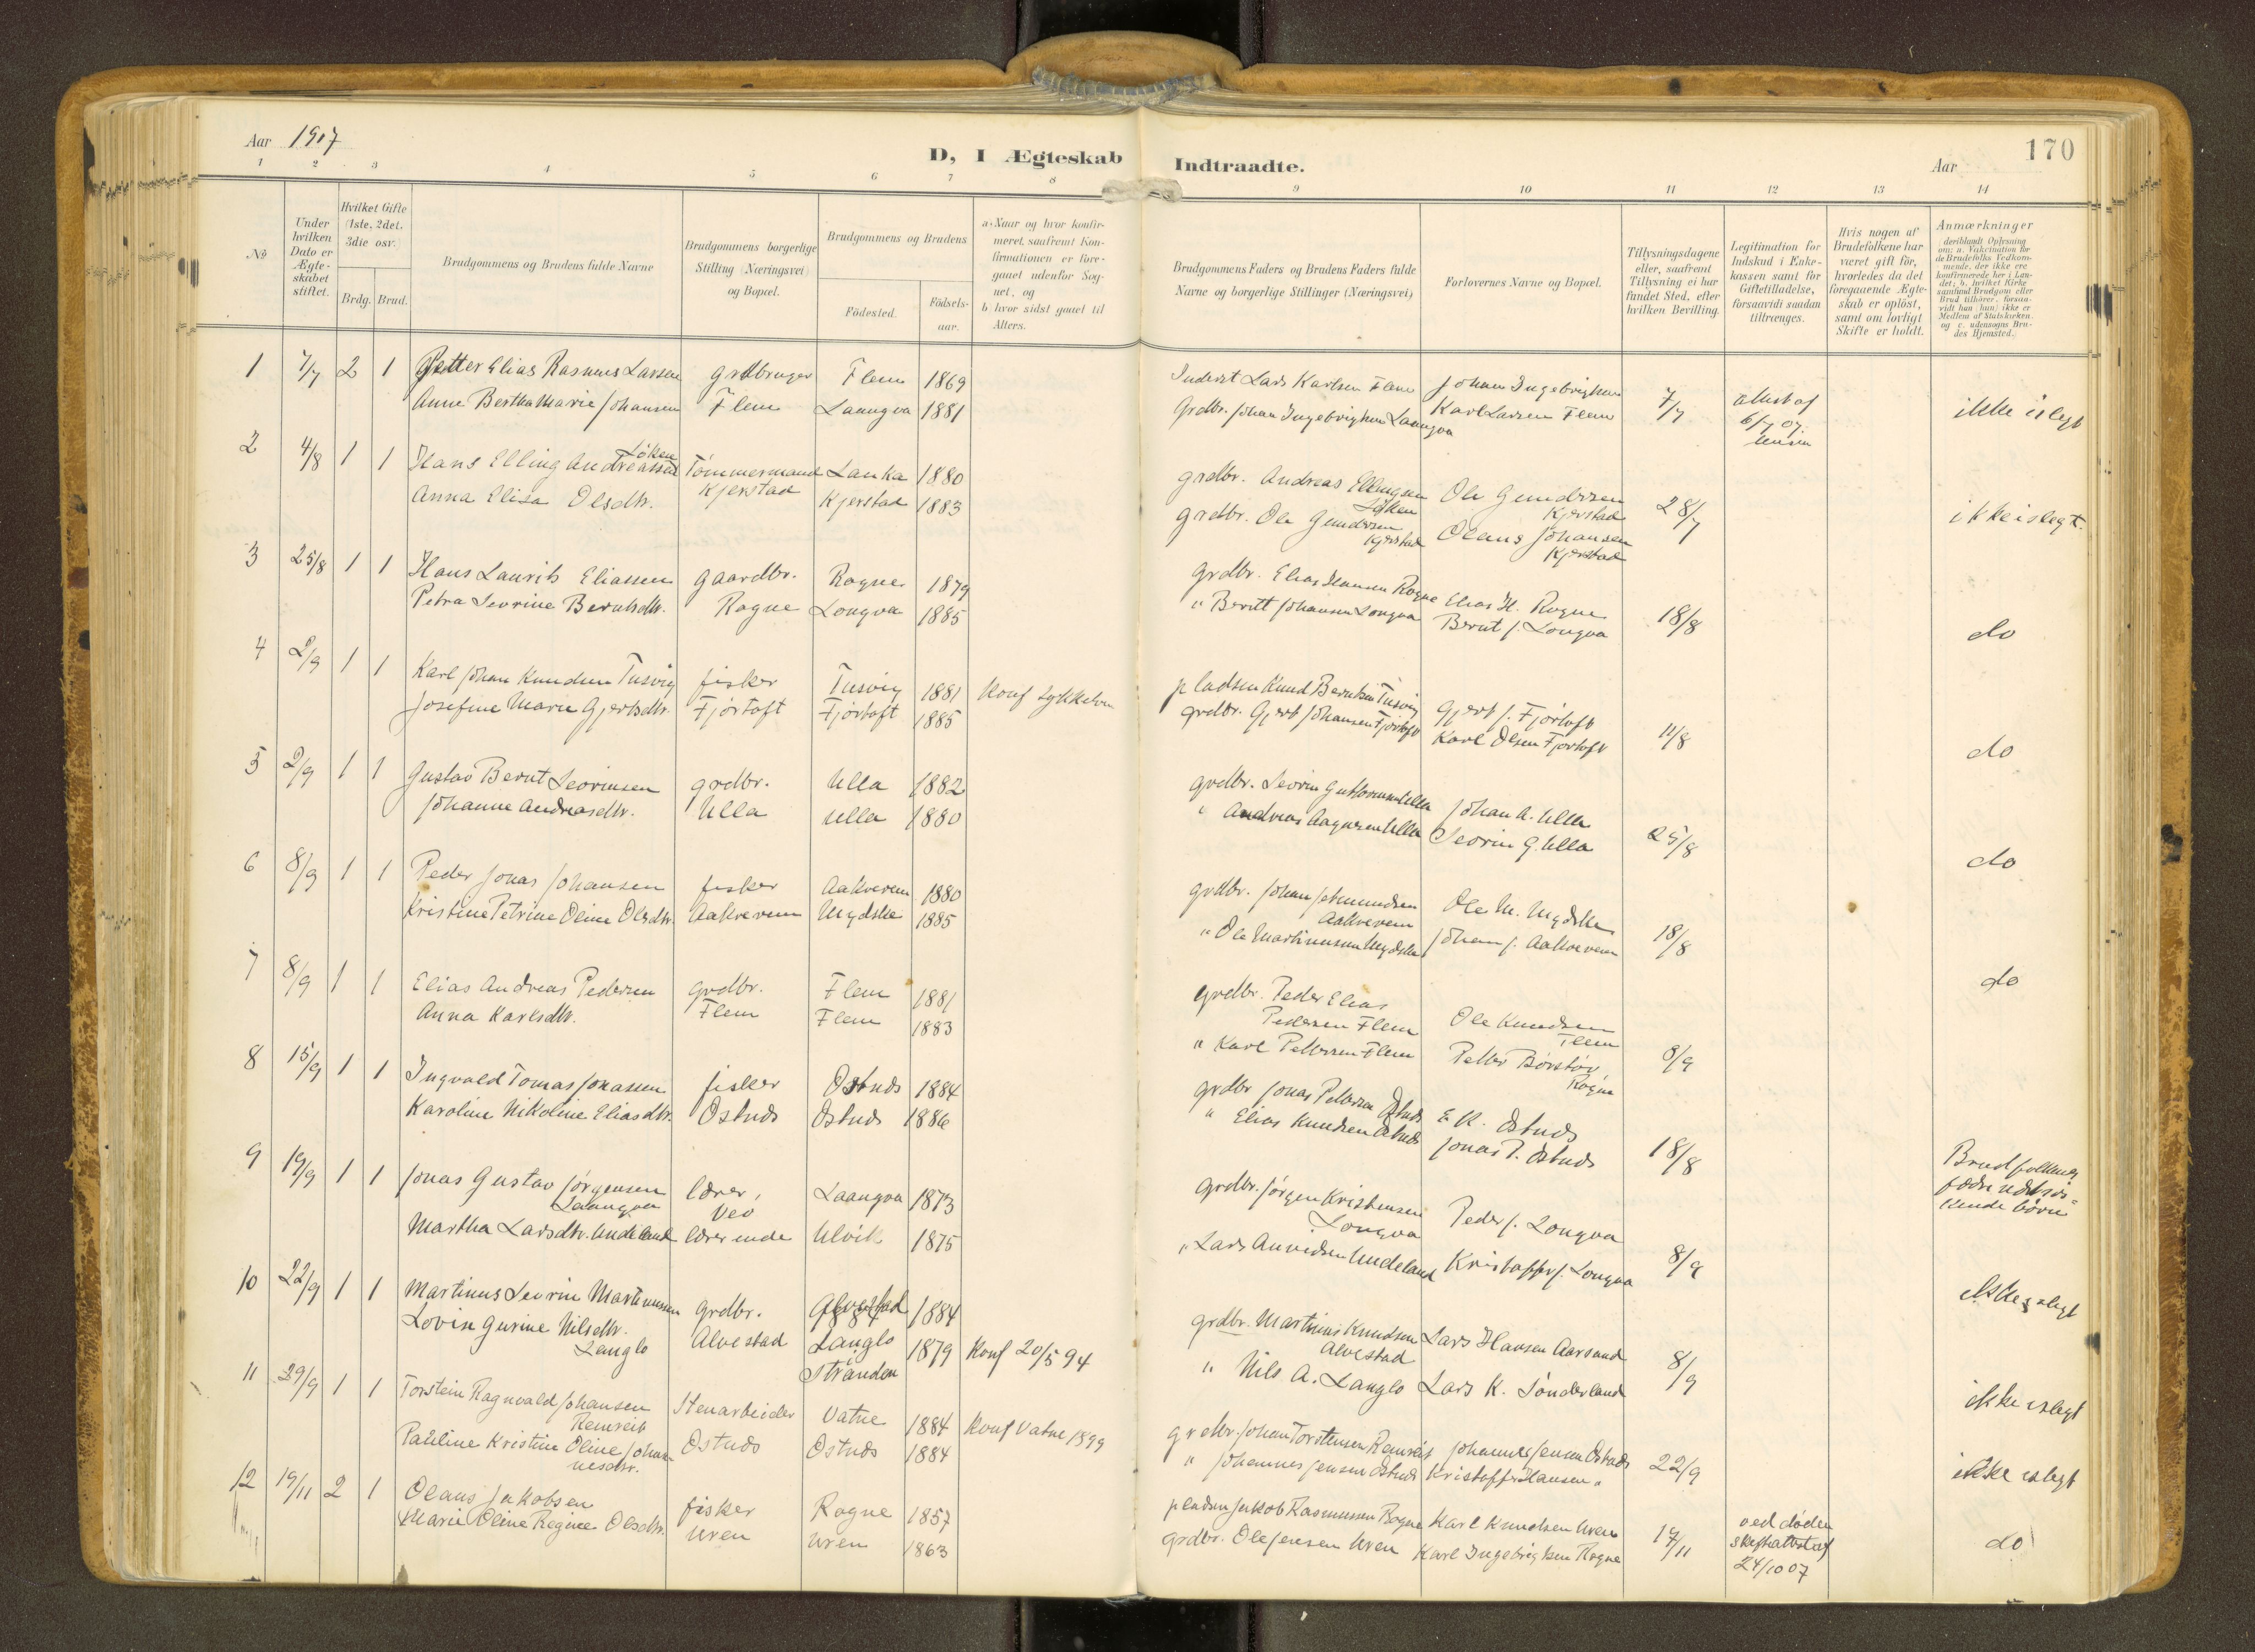 Aar 1907
D, I Ægteskab Indtraadte.
Aar
170
1 2 3 4 5 6 7 8 9 10 11 12 13 14
No
Under hvilken Dato er Ægte-skabet stiftet.
Hvilket Gifte (1ste, 2det, 3die osv.
Brdg. Brud.
Brudgommens og Brudens fulde Navne
Brudgommens borgerlige Stilling (Næringsvei) og Bopæl.
Brudgommens og Brudens
Födested.
Födsels-aar.
a) Naar og hvor konfir-meret, saafremt Kon-firmationen er fore-gaaet udenfor Sog-net, og
b) hvor sidst gaaet til Alters.
Brudgommens Faders og Brudens Faders fulde Navne og borgerlige Stillinger (Næringsvei)
Forlovernes Navne og Bopæl.
Tillysningsdagene eller, saafremt Tillysning ei har fundet Sted, efter hvilken Bevilling.
Legitimation for Indskud i Enke-kassen samt for Giftetilladelse, forsaavidt saadan tiltrænges.
Hvis nogen af Brudefolkene har været gift för, hvorledes da det foregaaende Ægte-skab er oplöst, samt om lovligt Skifte er holdt.
Anmærkninger
deriblandt Oplysning om: a. Vakcination for de Brudefolks Vedkom-mende, der ikke ere konfirmerede her i Lan-det; b. hvilket Kirke-samfund Brudgom eller Brud tilhörer, forsaa-vidt han (hun) ikke er Medlem af Statskirken, og c. udensogns Bru-des Hjemsted.
1 7/7 2 1 Petter Elias Rasmus Larsen grdbruger Flem 1869 Inderst Lars Karlsen Flem Johan Ingebrigtsen 7/7 attest af ikke islegt
Anne Bertha Marie Johansen Flem Laangva 1881 Grdbr. Johan Ingebrigtsen Laangva Karl Larsen Flem 6/7 07.
2 4/8 1 1 Hans Elling Andreassen Löken Tömmermand Lanka 1880 grdbr. Andreas Ellingsen Löken Ole Gundersen Kjerstad 28/7 ikke islegt.
Anna Elisa Olsdtr. Kjerstad Kjerstad 1883 grdbr. Ole Gundersen Kjerstad Olaus Johansen Kjerstad
3 25/8 1 1 Hans Laurits Eliassen gaardbr. Rogne 1879 grdbr. Elias Hansen Rogne Elias H. Rogne 18/8 do
Petra Sevrine Berntsdtr. Rogne Longva 1885 " Berntt Johansen Longva Bernt J. Longva
4 2/9 1 1 Karl Johan Knudsen Tusvig fisker Tusvig 1881 Konf Sykkelven pladsm Knud Berntsen Tusvig Gjert J. Fjörtoft 11/8 do
Josefine Marie Gjertsdtr. Fjörtoft Fjörtoft 1885 grdbr. Gjert Johansen Fjörtoft Karl Olsen Fjörtoft
5 2/9 1 1 Gustav Bernt Sevrinsen grdbr. Ulla 1882 grdbr. Sevrin Guttormsen Ulla Johan A. Ulla 25/8 do
Johanne Andreasdtr. Ulla Ulla 1880 " Andreas Aagesen Ulla Sevrin G. Ulla
6 8/9 1 1 Peder Jonas Johansen fisker Aakervem 1880 grdbr. Johan Johnsen Aakrevem Ole M. Uksnöi 18/8 do
Kristine Petrine Oline Olsdtr. Aakrevem 1885 " Ole Martinussen Johan J. Aakrevem
7 8/9 1 1 Elias Andreas Pedersen grdbr. Flem 1881 grdbr. Peder Elias Pedersen Flem Ole Knudsen Flem 8/9
Anna Karlsdtr. Flem Flem 1883 " Karl Pettersen Flem Petter Börstöy, Rogne
8 15/9 1 1 Ingvald Tomas Jonassen fisker Östnes 1884 grdbr Jonas Pettersen Östnes E K. Östnes 18/8
Karoline Nikoline Eliasdtr. Östnes Östnes 1886 " Elias Knudsen Östnes Jonas P. Östnes
9 19/9 1 1 Jonas Gustav Jörgensen Laangva lærer, Veo Laangva 1873 grdbr. Jörgen Kristensen Longva Peder J. Longva 8/9 Brudfolkenes
Martha Larsdtr. Undeland lærerinde Ulvik 1875 " Lars Anvidsen Undeland Kristoffer J. Longva
10 22/9 1 1 Martinus Sevrin Martinussen grdbr. Alvestad 1884 grdbr. Martinus Knudsen Alvestad Lars Hansen Aarsund 8/9 ikke islegt
Lovise Gurine Nilsdtr. Langlo Alvestad Langlo Stranden 1879 Konf 20/5 94 " Nils A. Langlo Lars K. Sönderland
11 29/9 1 1 Torstein Ragnvald Johansen Remreit Stenarbeider Vatne 1884 Konf Vatne 1899 grdbr. Johan Torstensen Remreit Johannes Jensen Östnes 22/9 ikke islegt
Pauline Kristine Oline Johan-nesdtr. Östnes Östnes 1884 " Johannes Jensen Östnes Kristoffer Hansen " ikke islegt
12 19/11 2 1 Olaus Jakobsen fisker Rogne 1857 pladsm Jakob Rasmussen Rogne Karl Knudsen Uren 17/11 ved döden skifteattest af 24/10 07 do
Marie Oline Regine Olsdtr. Uren Uren 1863 grdbr. Ole Jensen Uren Karl Ingebrigtsen Rogne